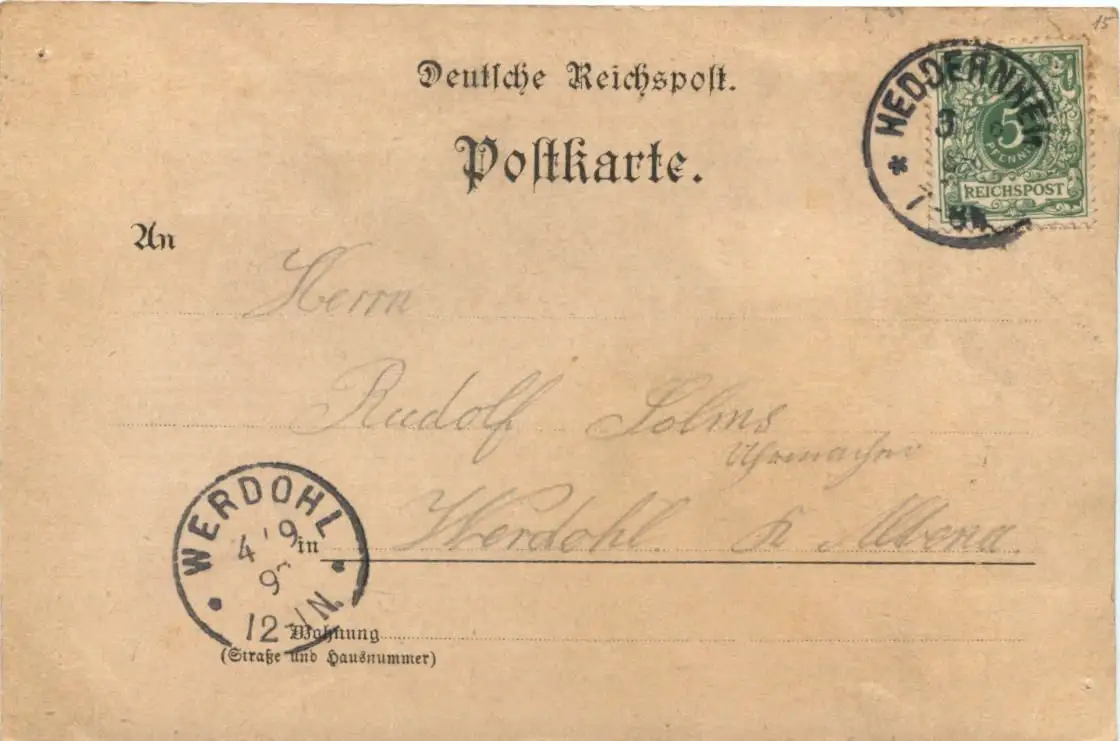 15
Deutsche Reichspost.
Postkarte.
HEDDERNHEIM
3
5
PFENNIG
REICHSPOST
An
Herrn
Rudolf Solms
Uhrmacher
Werdohl.
WERDOHL
4 9
12-1N.
in
Wohnung
(Straße und Hausnummer)